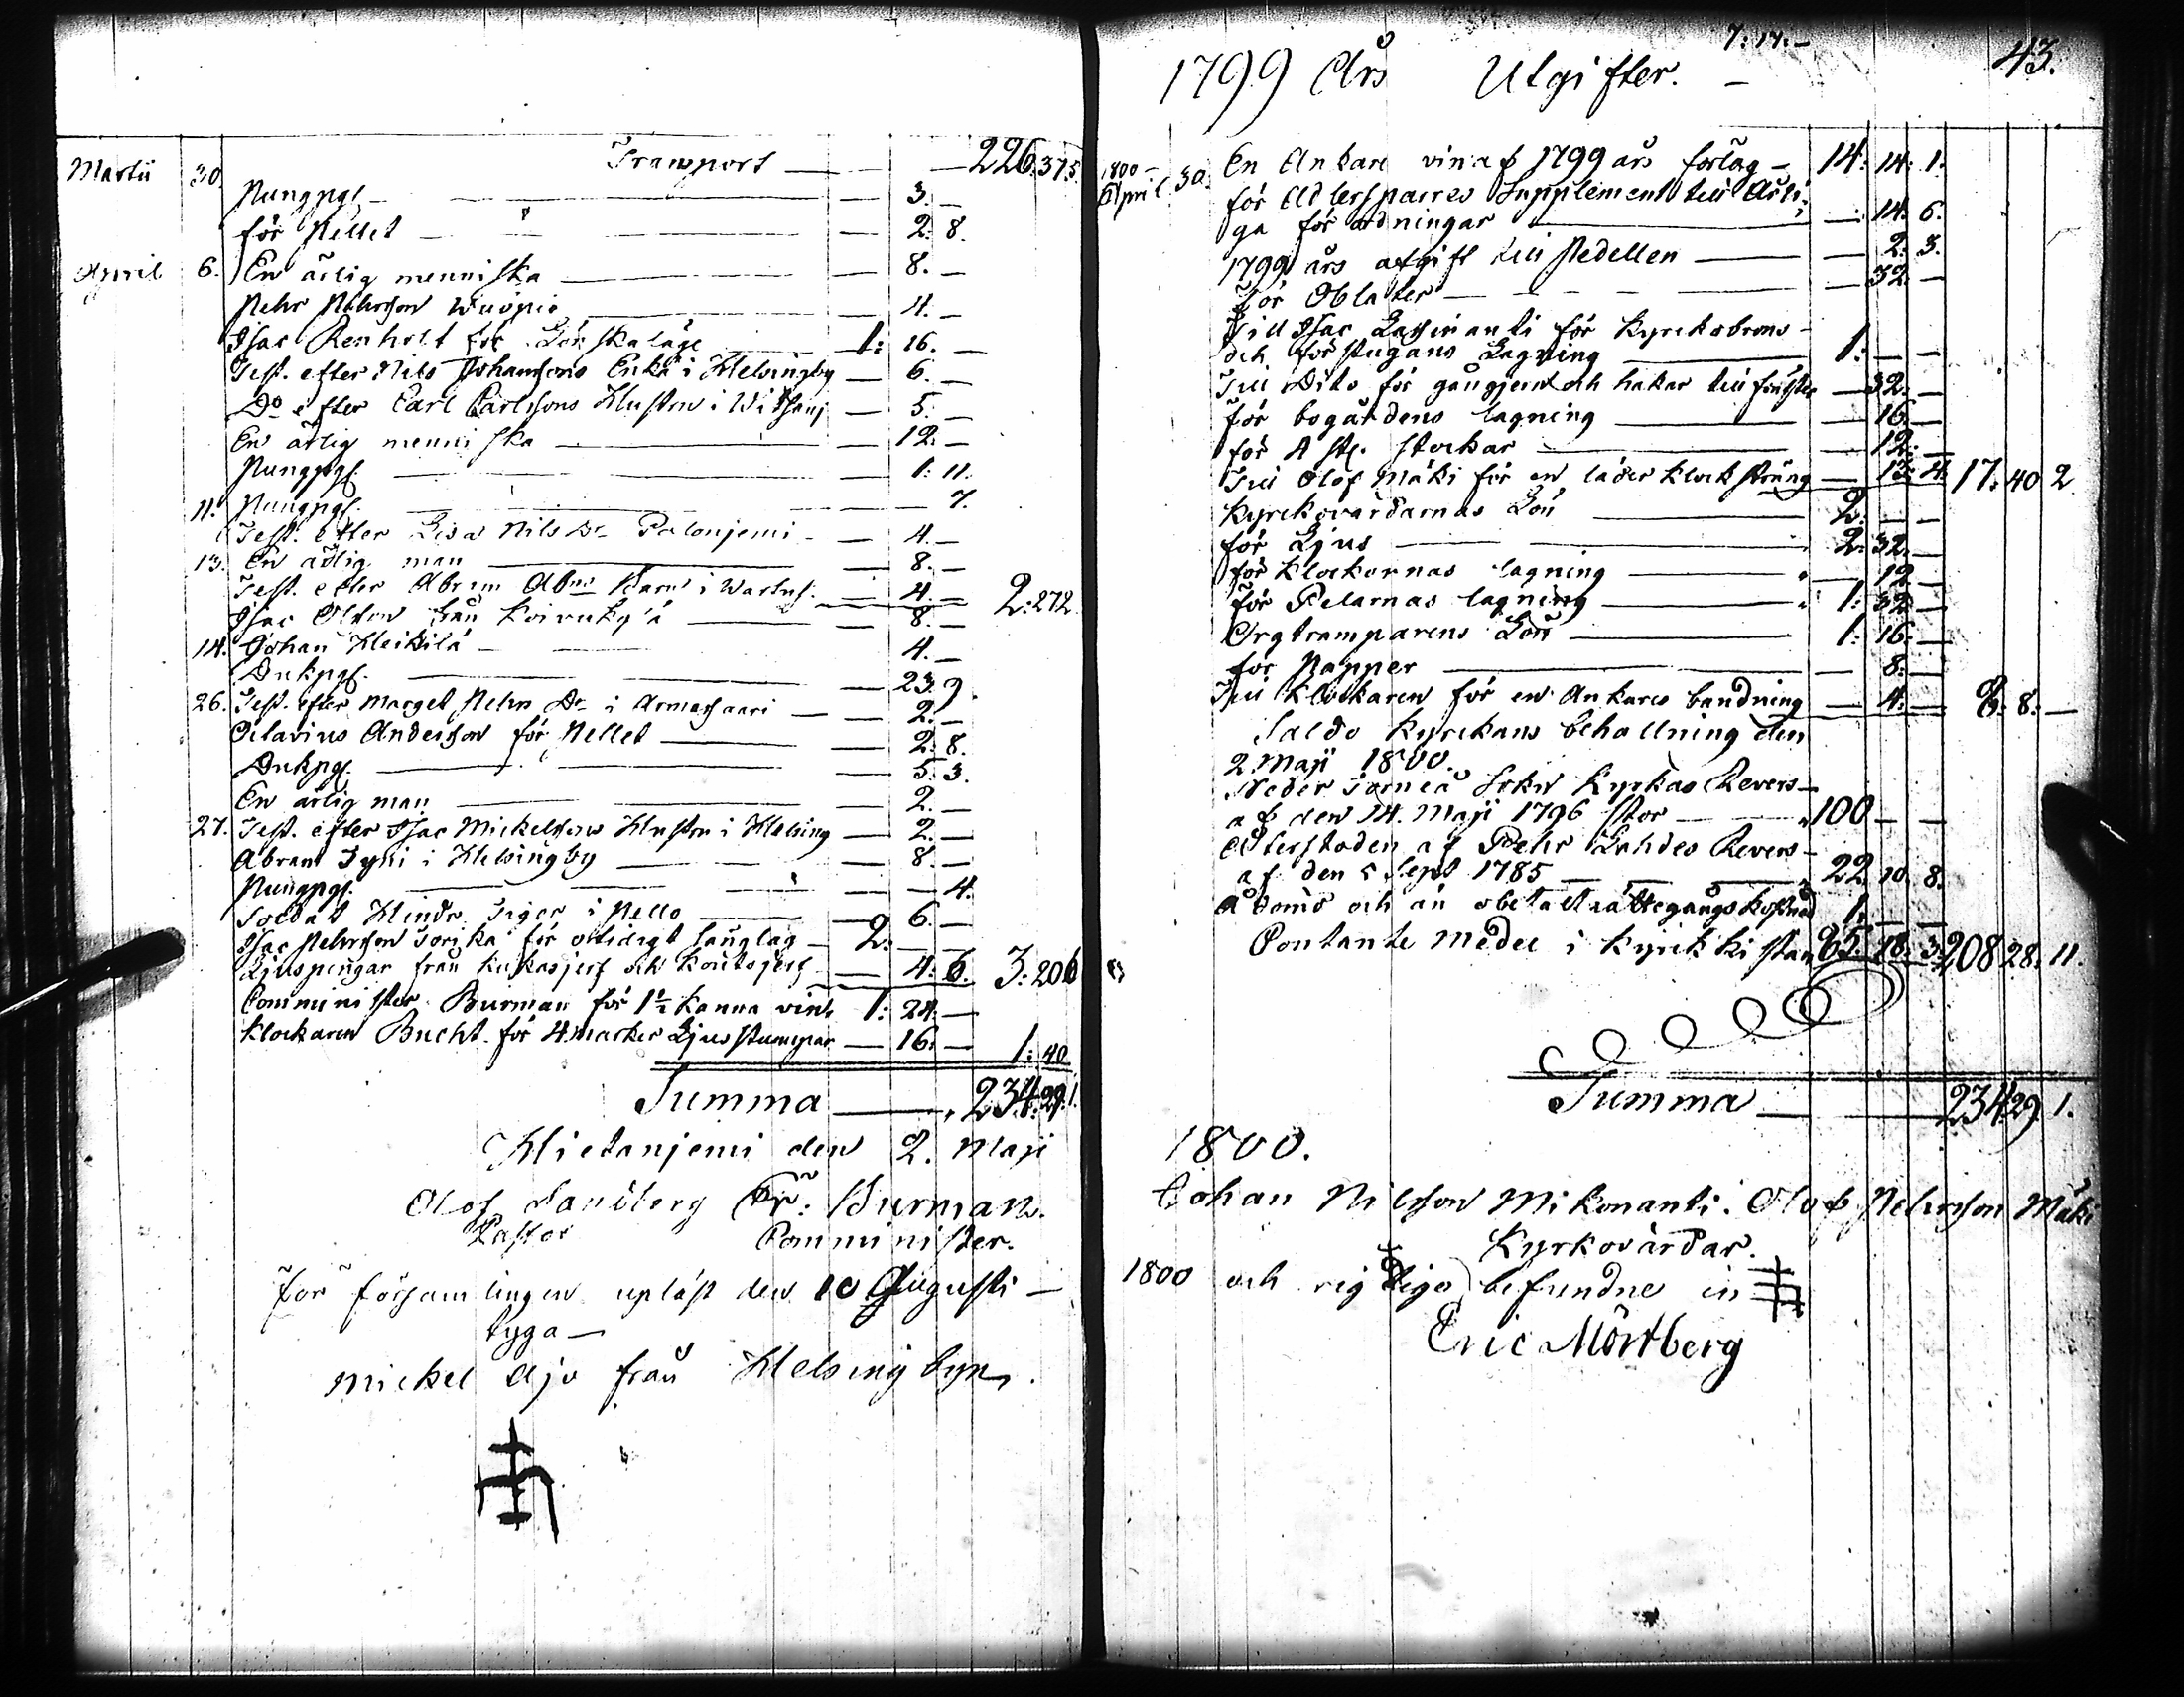 Transport — 226. 37 5.
Martii 30. Pungpgr — 3. —
för Pellet — 2. 8.
April 6. En ärlig menniska — 8. —
Pehr Pehrsson Wuopio — 4. —
Isac Renholt för Lönskaläge — 1: 16. —
Test. efter Nils Johanssons Enka i Helsingby — 6. —
Do efter Carl Carlssons Hustru i Witsanj — 5. —
En ärlig menniska — 12. —
Pungpgr. — 1. 11.
11. Pungpgr. — 7.
Test. efter Lisa Nils Dr Palonjemi — 4. —
13. En ärlig man — 8. —
Test. efter Abram Abms Barn i — 4. — 2: 27 2.
Isac Olsson från Koivuky'ä — 8. —
14. Johan Heikilä — 4. —
Dukpgr. — 23. 9.
26. Test. efter Marget Pehrs Dr i Armassaari — 2. —
Octavius Andersson för Pellet — 2. 8.
Dukpgr. — 5. 3.
En ärlig man — 2. —
27. Test. efter Isac Mickelssons Hustru i Helsing — 2. —
Abram Jyni i Helsingby — 8. —
Pungpgr. — 4.
Soldat Hindr. Tiger i Pello — 6. —
Isac Pehrsson Torika för otidigt sänglag — 2. — —
Ljuspengar från Kukasjerf och Koutojerf — 4. 6. 3: 20 6
Comminister Burman för 1½ Kanna vin — 1: 24. —
Klockaren Bucht för 4 marker Ljusstumpar — 16. — 1: 40
Summa — 234. 29. 1.
Hietanjemi den 2. Maji
Olof Sandberg Er: Burman.
Pastor Comminister.
För församlingen upläst den 10 Augusti —
tyga —
Mickel Ajo från Helsingbyn.
7: 17: —
43.
1799 Års Utgifter. —
1800 — April 30. En Ankare vin af 1799 års förlag — 14: 14: 1.
för Adlersparres Supplement till Årli-
ga förordningar — 14. 6.
1799 års afgift till Pedellen — 2. 3.
För Oblater — 32. —
Till Isac Lassinanti för Kyrckobrons
och förstugans Lagning — 1: — —
Till Dito för gångjern och hakar till fönster — 32. —
för bogårdens lagning — 16. —
för 4 st. stockar — 12. —
Till Olof Mäki för en läder klocksträng — 13. 4. 17: 40 2
Kyrckovärdarnas Lön — 2. — —
för Ljus — 2: 32. —
för Klockornas lagning — 12 —
för Pelarnas lagning — 1: 32 —
Orgtramparens Lön — 1: 16: —
för Papper — 8: —
Till Klockaren för en Ankares bandning — 4: — 8: 8: —
Saldo Kyrckans behållning den
2 Maji 1800.
Neder Torneå Sokn Kyrkas Revers —
af den 14. Maji 1796 stor — 100 — —
Återstoden af Pehr Lahdes Revers —
af den 5 Sept 1785 — 22. 10. 8.
Ådömd och än obetalt rättegångskostnad 1. — —
Contante Medel i Kyrckkistan 85. 18. 3. 208 28. 11.
Summa — 234. 29. 1.
1800.
Johan Nilsson Mikonanti. Olof Pehrsson Mäki
Kyrkovärdar.
1800 och rigtiga befundne in
Eric Mörtberg